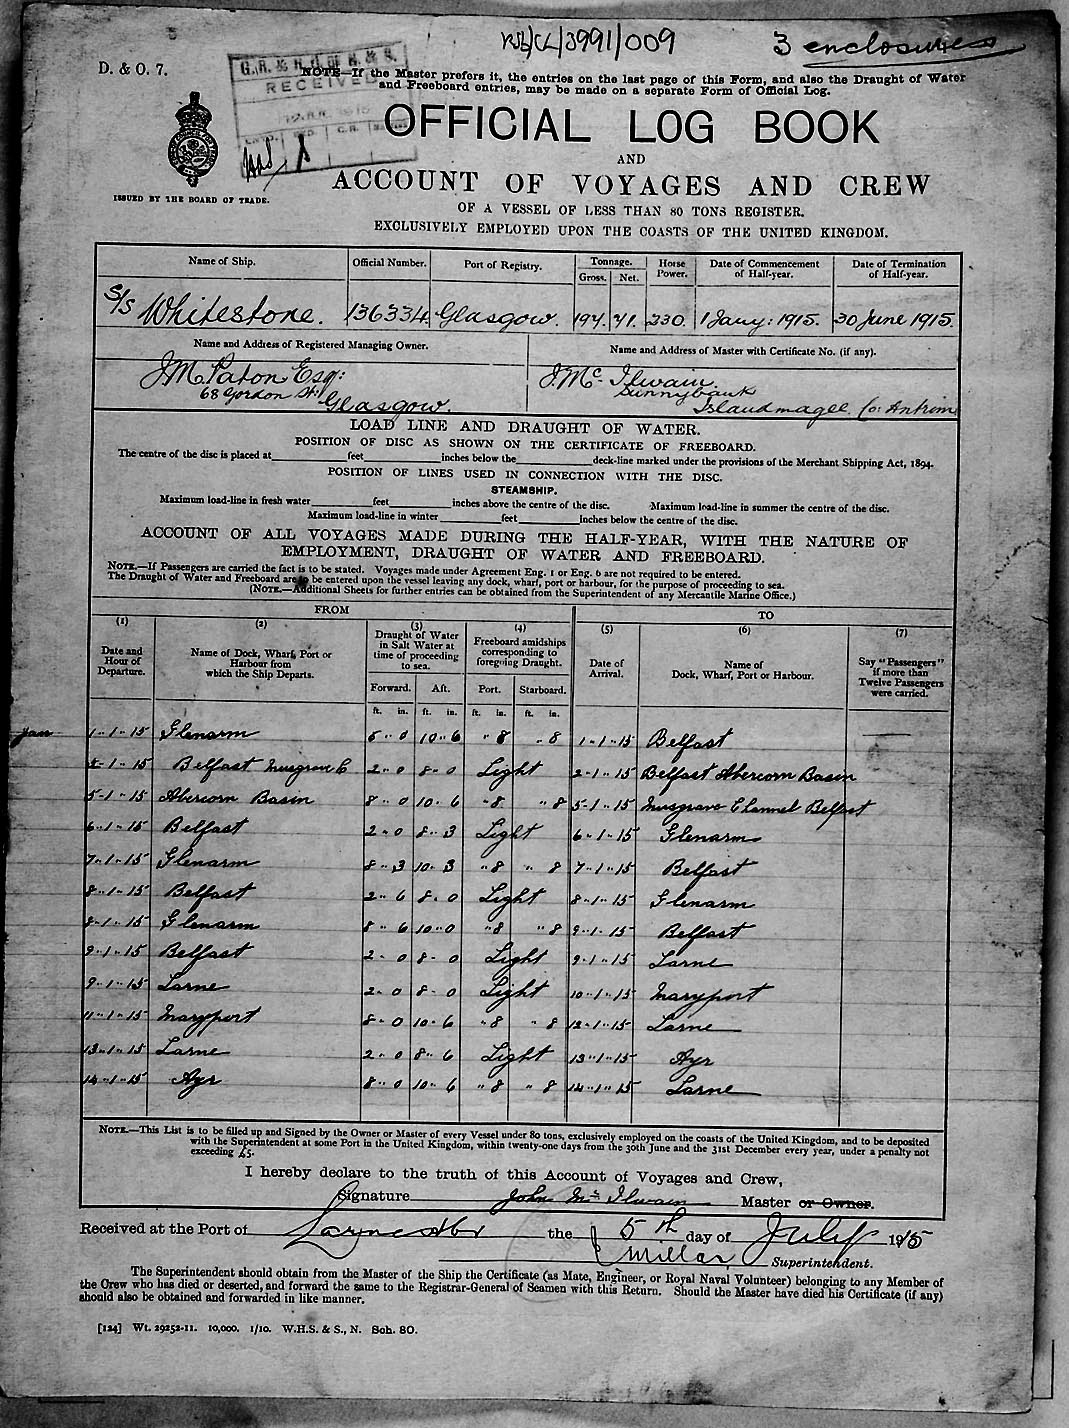 RSS/CL/3991/009
3 enclosures
D. & O. 7.
G.R. & H.O. of R. & S.
RECEIVED
NOTE—If the Master prefers it, the entries on the last page of this Form, and also the Draught of Water
and Freeboard entries, may be made on a separate Form of Official Log.
OFFICIAL LOG BOOK
AND
ACCOUNT OF VOYAGES AND CREW
ISSUED BY THE BOARD OF TRADE.
OF A VESSEL OF LESS THAN 80 TONS REGISTER.
EXCLUSIVELY EMPLOYED UPON THE COASTS OF THE UNITED KINGDOM.
Name of Ship. Official Number. Port of Registry. Tonnage. Horse Power. Date of Commencement of Half-year. Date of Termination of Half-year.
Gross. Net.
S/S Whitestone. 136334 Glasgow. 194. 71. 230. 1 Jany: 1915. 30 June 1915.
Name and Address of Registered Managing Owner. Name and Address of Master with Certificate No. (if any).
J M Paton Esq: J. Mc Ilwain.
68 Gordon St: Sunnybank
Glasgow. Islandmagee. Co: Antrim
LOAD LINE AND DRAUGHT OF WATER.
POSITION OF DISC AS SHOWN ON THE CERTIFICATE OF FREEBOARD.
The centre of the disc is placed at feet inches below the deck-line marked under the provisions of the Merchant Shipping Act, 1894.
POSITION OF LINES USED IN CONNECTION WITH THE DISC.
STEAMSHIP.
Maximum load-line in fresh water feet inches above the centre of the disc. Maximum load-line in summer the centre of the disc.
Maximum load-line in winter feet inches below the centre of the disc.
ACCOUNT OF ALL VOYAGES MADE DURING THE HALF-YEAR, WITH THE NATURE OF
EMPLOYMENT, DRAUGHT OF WATER AND FREEBOARD.
NOTE.—If Passengers are carried the fact is to be stated. Voyages made under Agreement Eng. 1 or Eng. 6 are not required to be entered.
The Draught of Water and Freeboard are to be entered upon the vessel leaving any dock, wharf, port or harbour, for the purpose of proceeding to sea.
(NOTE.—Additional Sheets for further entries can be obtained from the Superintendent of any Mercantile Marine Office.)
FROM TO
(1) (2) (3) (4) (5) (6) (7)
Date and Hour of Departure. Name of Dock, Wharf, Port or Harbour from which the Ship Departs. Draught of Water in Salt Water at time of proceeding to sea. Freeboard amidships corresponding to foregoing Draught. Date of Arrival. Name of Dock, Wharf, Port or Harbour. Say "Passengers" if more than Twelve Passengers were carried.
Forward. Aft. Port. Starboard.
ft. in. ft. in. ft. in. ft. in.
Jan 1-1-15 Glenarm 0 10 6 " 8 " 8 1-1-15 Belfast
1-15 Belfast Musgrave C 2 0 8 0 Light 2-1-15 Belfast Abercorn Basin
5-1-15 Abercorn Basin 8 0 10 6 " 8 " 8 5-1-15 Musgrave Channel Belfast
6-1-15 Belfast 2 0 8 3 Light 6-1-15 Glenarm
7-1-15 Glenarm 8 3 10 3 " 8 " 8 7-1-15 Belfast
8-1-15 Belfast 2 6 8 0 Light 8-1-15 Glenarm
8-1-15 Glenarm 8 6 10 0 " 8 " 8 9-1-15 Belfast
9-1-15 Belfast 2 0 8 0 Light 9-1-15 Larne
9-1-15 Larne 2 0 8 0 Light 10-1-15 Maryport
11-1-15 Maryport 8 0 10 6 " 8 " 8 12-1-15 Larne
13-1-15 Larne 2 0 8 6 Light 13-1-15 Ayr
14-1-15 Ayr 8 0 10 6 " 8 " 8 14-1-15 Larne
NOTE.—This List is to be filled up and Signed by the Owner or Master of every Vessel under 80 tons, exclusively employed on the coasts of the United Kingdom, and to be deposited
with the Superintendent at some Port in the United Kingdom, within twenty-one days from the 30th June and the 31st December every year, under a penalty not
exceeding £5.
I hereby declare to the truth of this Account of Voyages and Crew,
Signature John Mc Ilwain Master or Owner.
Received at the Port of Larne Hbr the 5th day of July 1915
Millar, Superintendent.
The Superintendent should obtain from the Master of the Ship the Certificate (as Mate, Engineer, or Royal Naval Volunteer) belonging to any Member of
the Crew who has died or deserted, and forward the same to the Registrar-General of Seamen with this Return. Should the Master have died his Certificate (if any)
should also be obtained and forwarded in like manner.
[124] Wt. 29252-11. 10,000. 1/10. W.H.S. & S., N. Sch. 80.